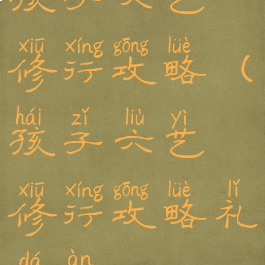 孩子六艺
xiū xíng gōng lüè
修行攻略（
hái zǐ liù yì
孩子六艺
xiū xíng gōng lüè lǐ
修行攻略礼
dá àn